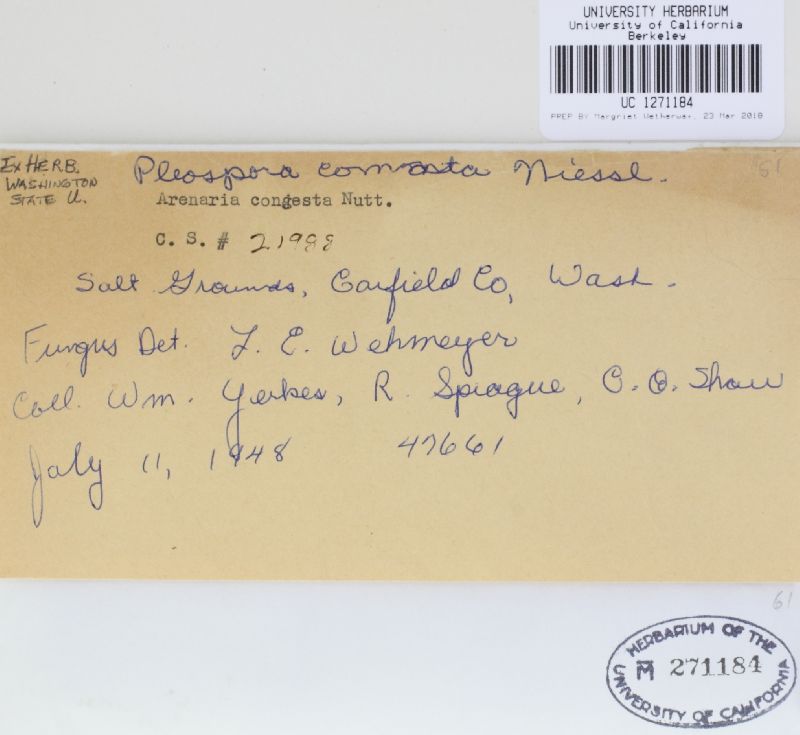 UNIVERSITY HERBARIUM
University of California
Berkeley
UC 1271184
PREP BY Margriet Wetherwax, 23 Mar 2018
Ex HERB.
WASHINGTON
STATE U.
Pleospora comata Niessl.
61
Arenaria congesta Nutt.
C. S. # 21988
Salt Grounds, Garfield Co, Wash.
Fungus Det. L. E. Wehmeyer
Coll. Wm. Yerkes, R. Sprague, C. G. Shaw
July 11, 1948 47661
61
HERBARIUM OF THE
M 271184
UNIVERSITY OF CALIFORNIA